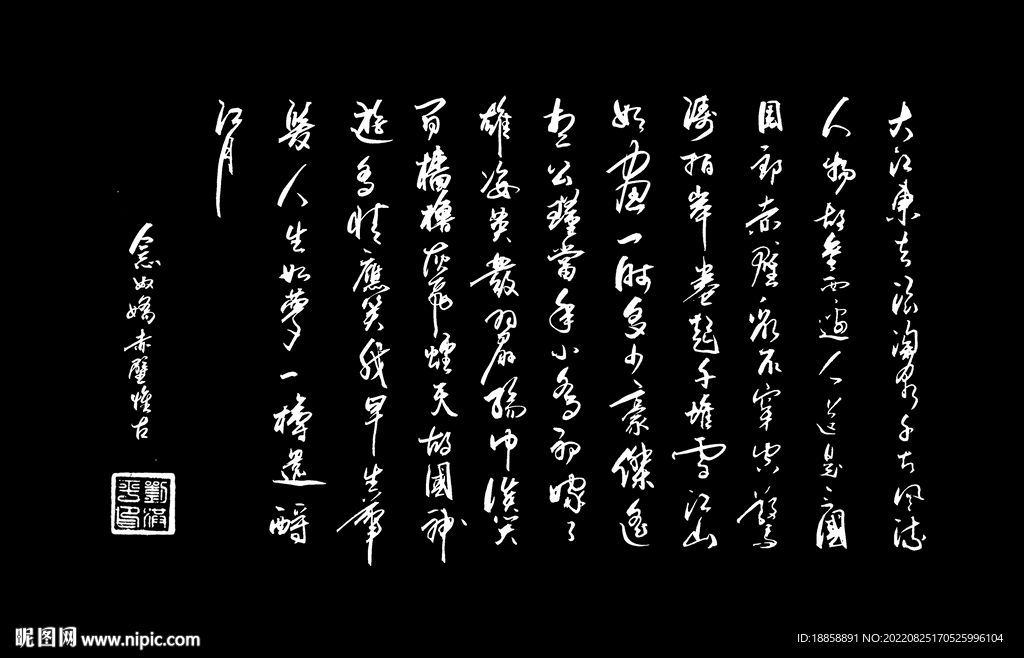 大江東去浪淘盡千古風流
人物故壘西邊人道是三國
周郎赤壁亂石穿空驚
濤拍岸卷起千堆雪江山
如畫一時多少豪傑遙
想公瑾當年小喬初嫁了
雄姿英發羽扇綸巾談笑
間檣櫓灰飛煙滅故國神
遊多情應笑我早生華
髮人生如夢一樽還酹
江月
念奴嬌赤壁懷古
昵图网 www.nipic.com
ID:18858891 NO:20220825170525996104